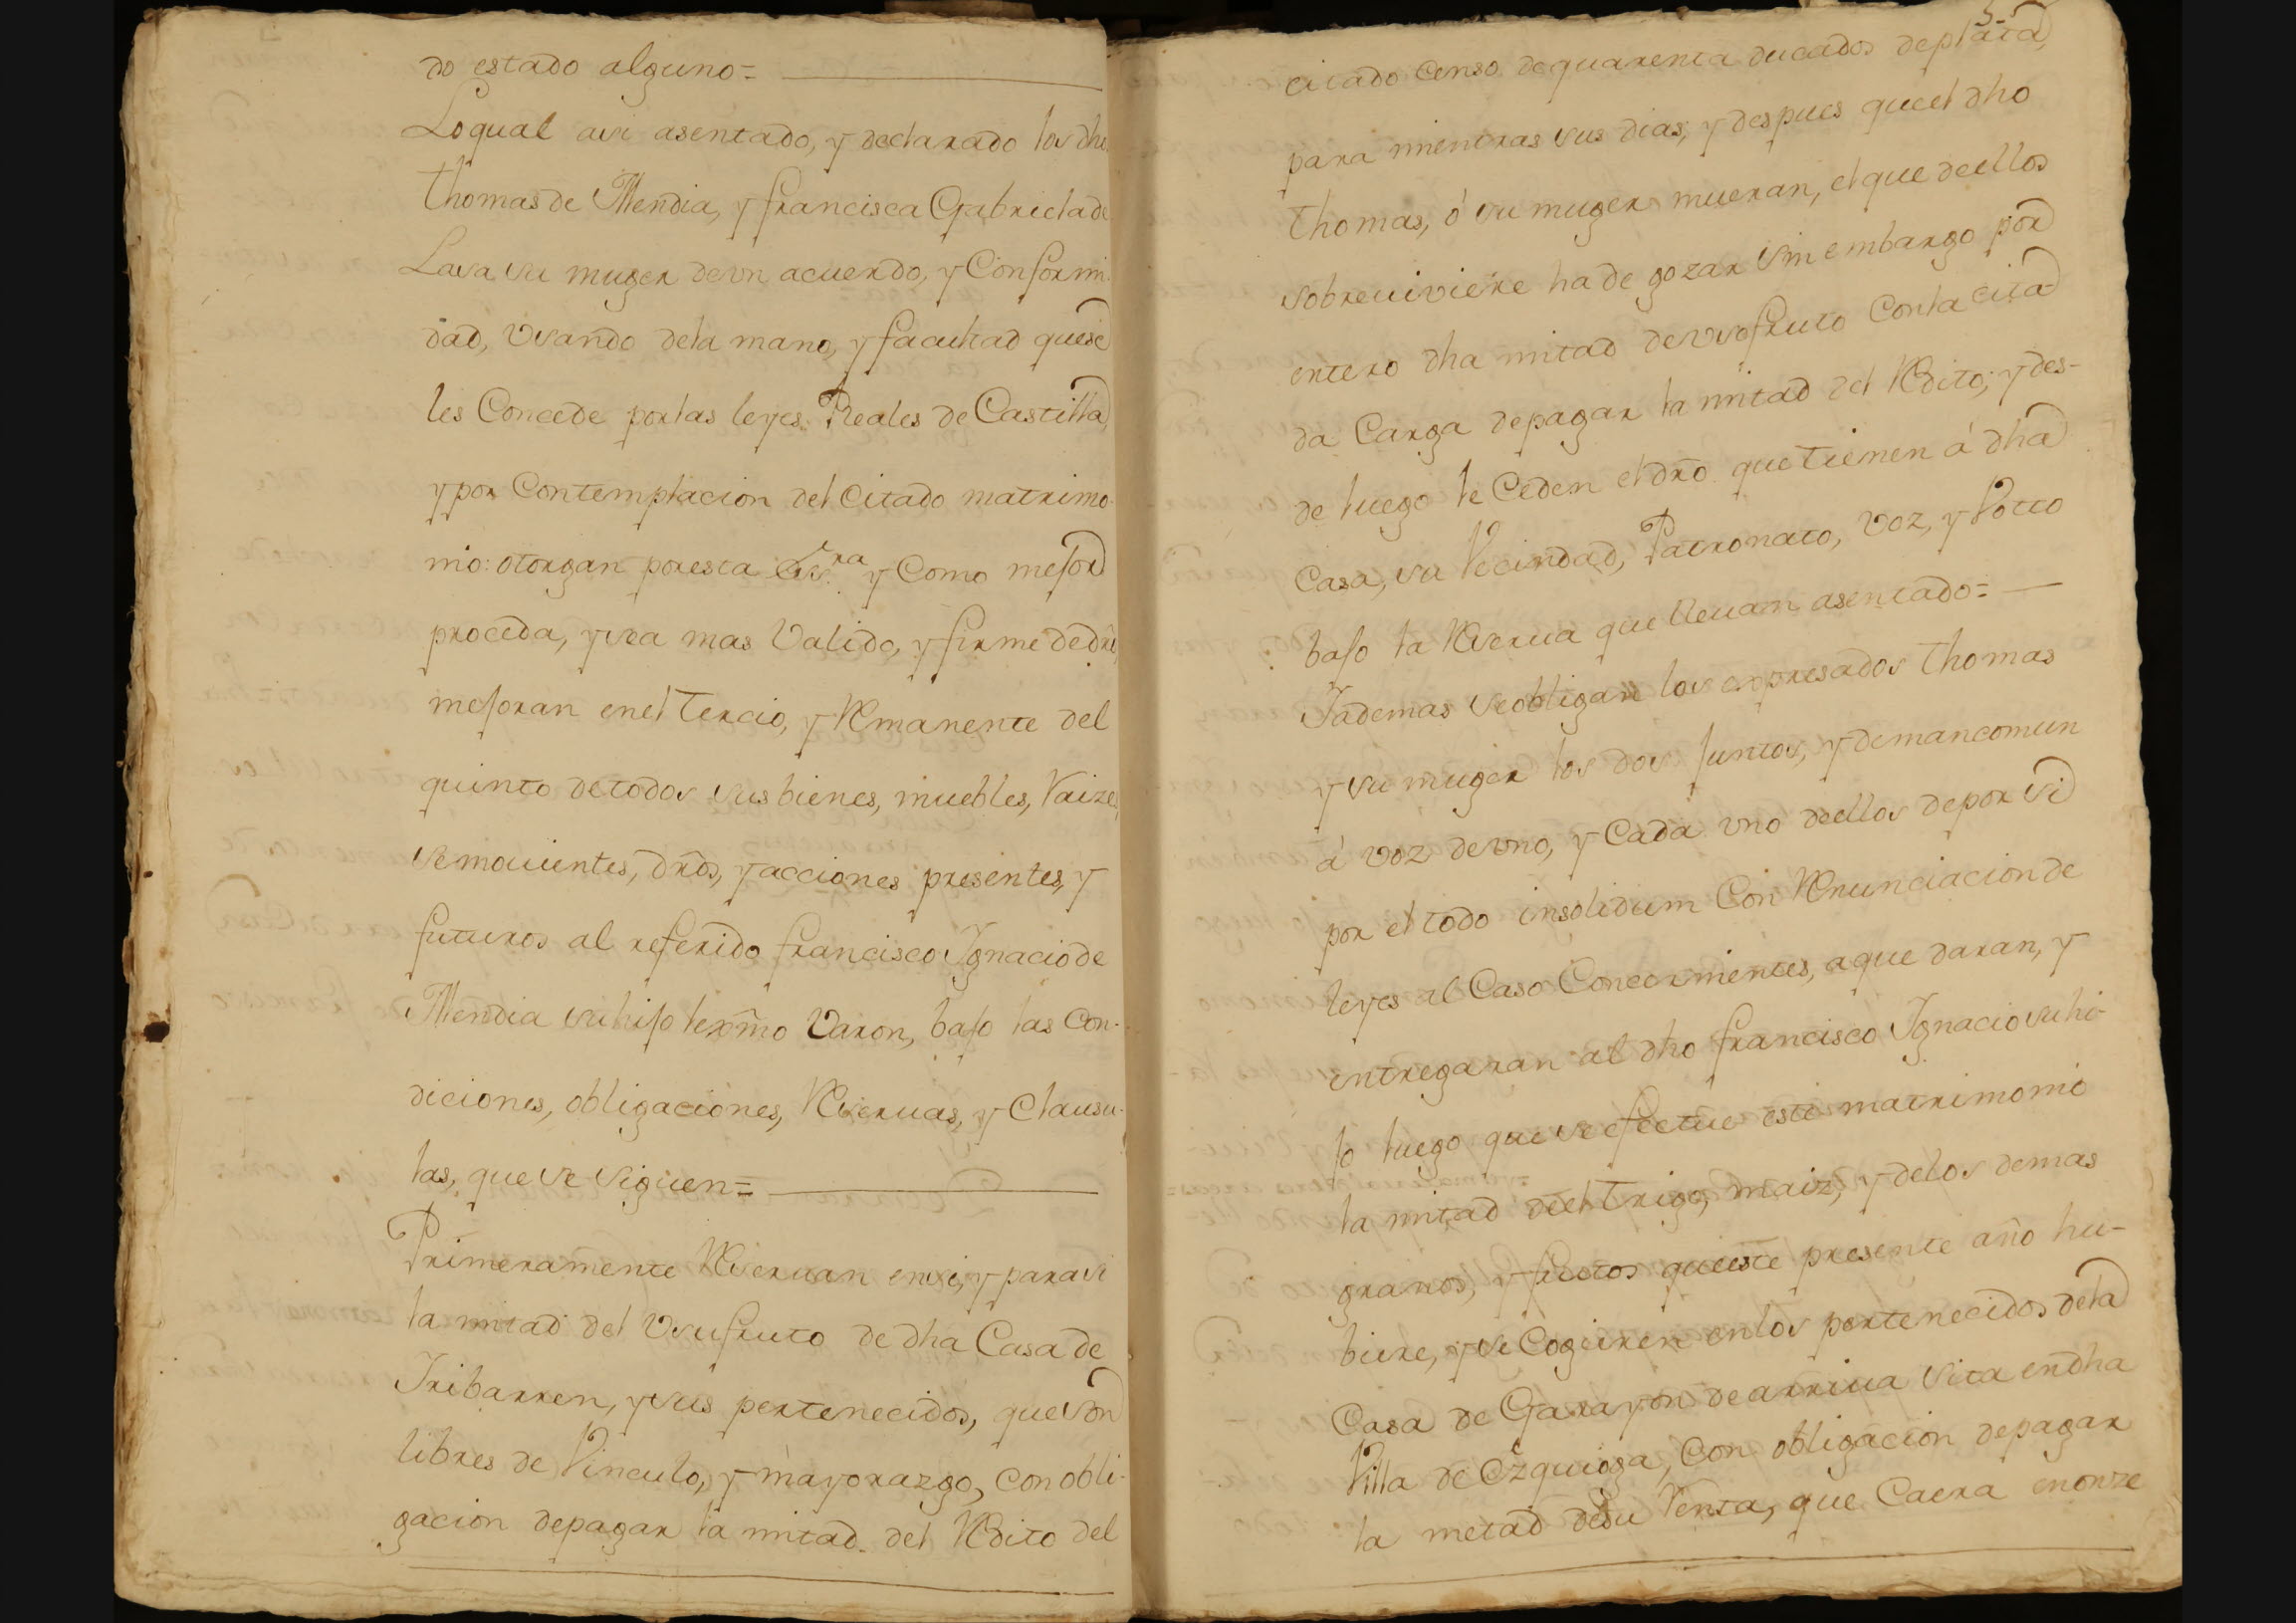 do estado alguno=
Loqual asi asentado, y declarado los dho
Thomas de Mendia, y francisca Gabriela de
Lasa su muger de vn acuerdo, y Conformi-
dad, Vsando dela mano, y facultad quese
les Concede por las leyes Reales de Castilla,
y por Contemplacion del Citado matrimo-
nio: otorgan por esta Essra y Como mejor
proceda, y sea mas Valido, y firme de dro,
mejoran enel Tercio, y Remanente del
quinto de todos sus bienes, muebles, Raizes,
semouientes, dros, y acciones presentes, y
futuros al referido francisco Ignacio de
Mendia su hijo lexmo Varon, bajo las Con-
diciones, obligaciones, Reseruas, y Clausu-
las, que se siguen=
Primeramente Reseruan ensi, y parasi
la mitad del Vsufruto de dha Casa de
Iribarren, y sus pertenecidos, que son
libres de Vinculo, y mayorazgo, con obli-
gacion depagar la mitad del Redito del
5-
citado Censo de quarenta ducados de plata,
para mientras sus dias; y despues queel dho
Thomas, ó su muger mueran, el que deellos
sobreuiviere ha de gozar sin embargo por
entero dha mitad de vsofruto Conla cita-
da Carga depagar la mitad del Redito; y des-
de luego le Ceden el dro que tienen á dha
Casa, su Vecindad, Patronato, Voz, y Votto
bajo la Reserua que lleuan asentado=
Iademas se obligan los expresados Thomas
y su muger los dos Juntos, y demancomun
á voz de vno, y Cada vno deellos depor si
por el todo insolidum Con Renunciacion de
leyes al Caso Concernientes, aque daran, y
entregaran al dho francisco Ignacio su hi-
jo luego que se efectue este matrimonio
la mitad deel Trigo, maiz, y delos demas
granos, y frutos queeste presente año hu-
biere, y se Cogieren enlos pertenecidos dela
Casa de Garayon de arriua Sita en dha
Villa de Ezquioga, Con obligacion depagar
la metad desu Renta, que Caera enonze